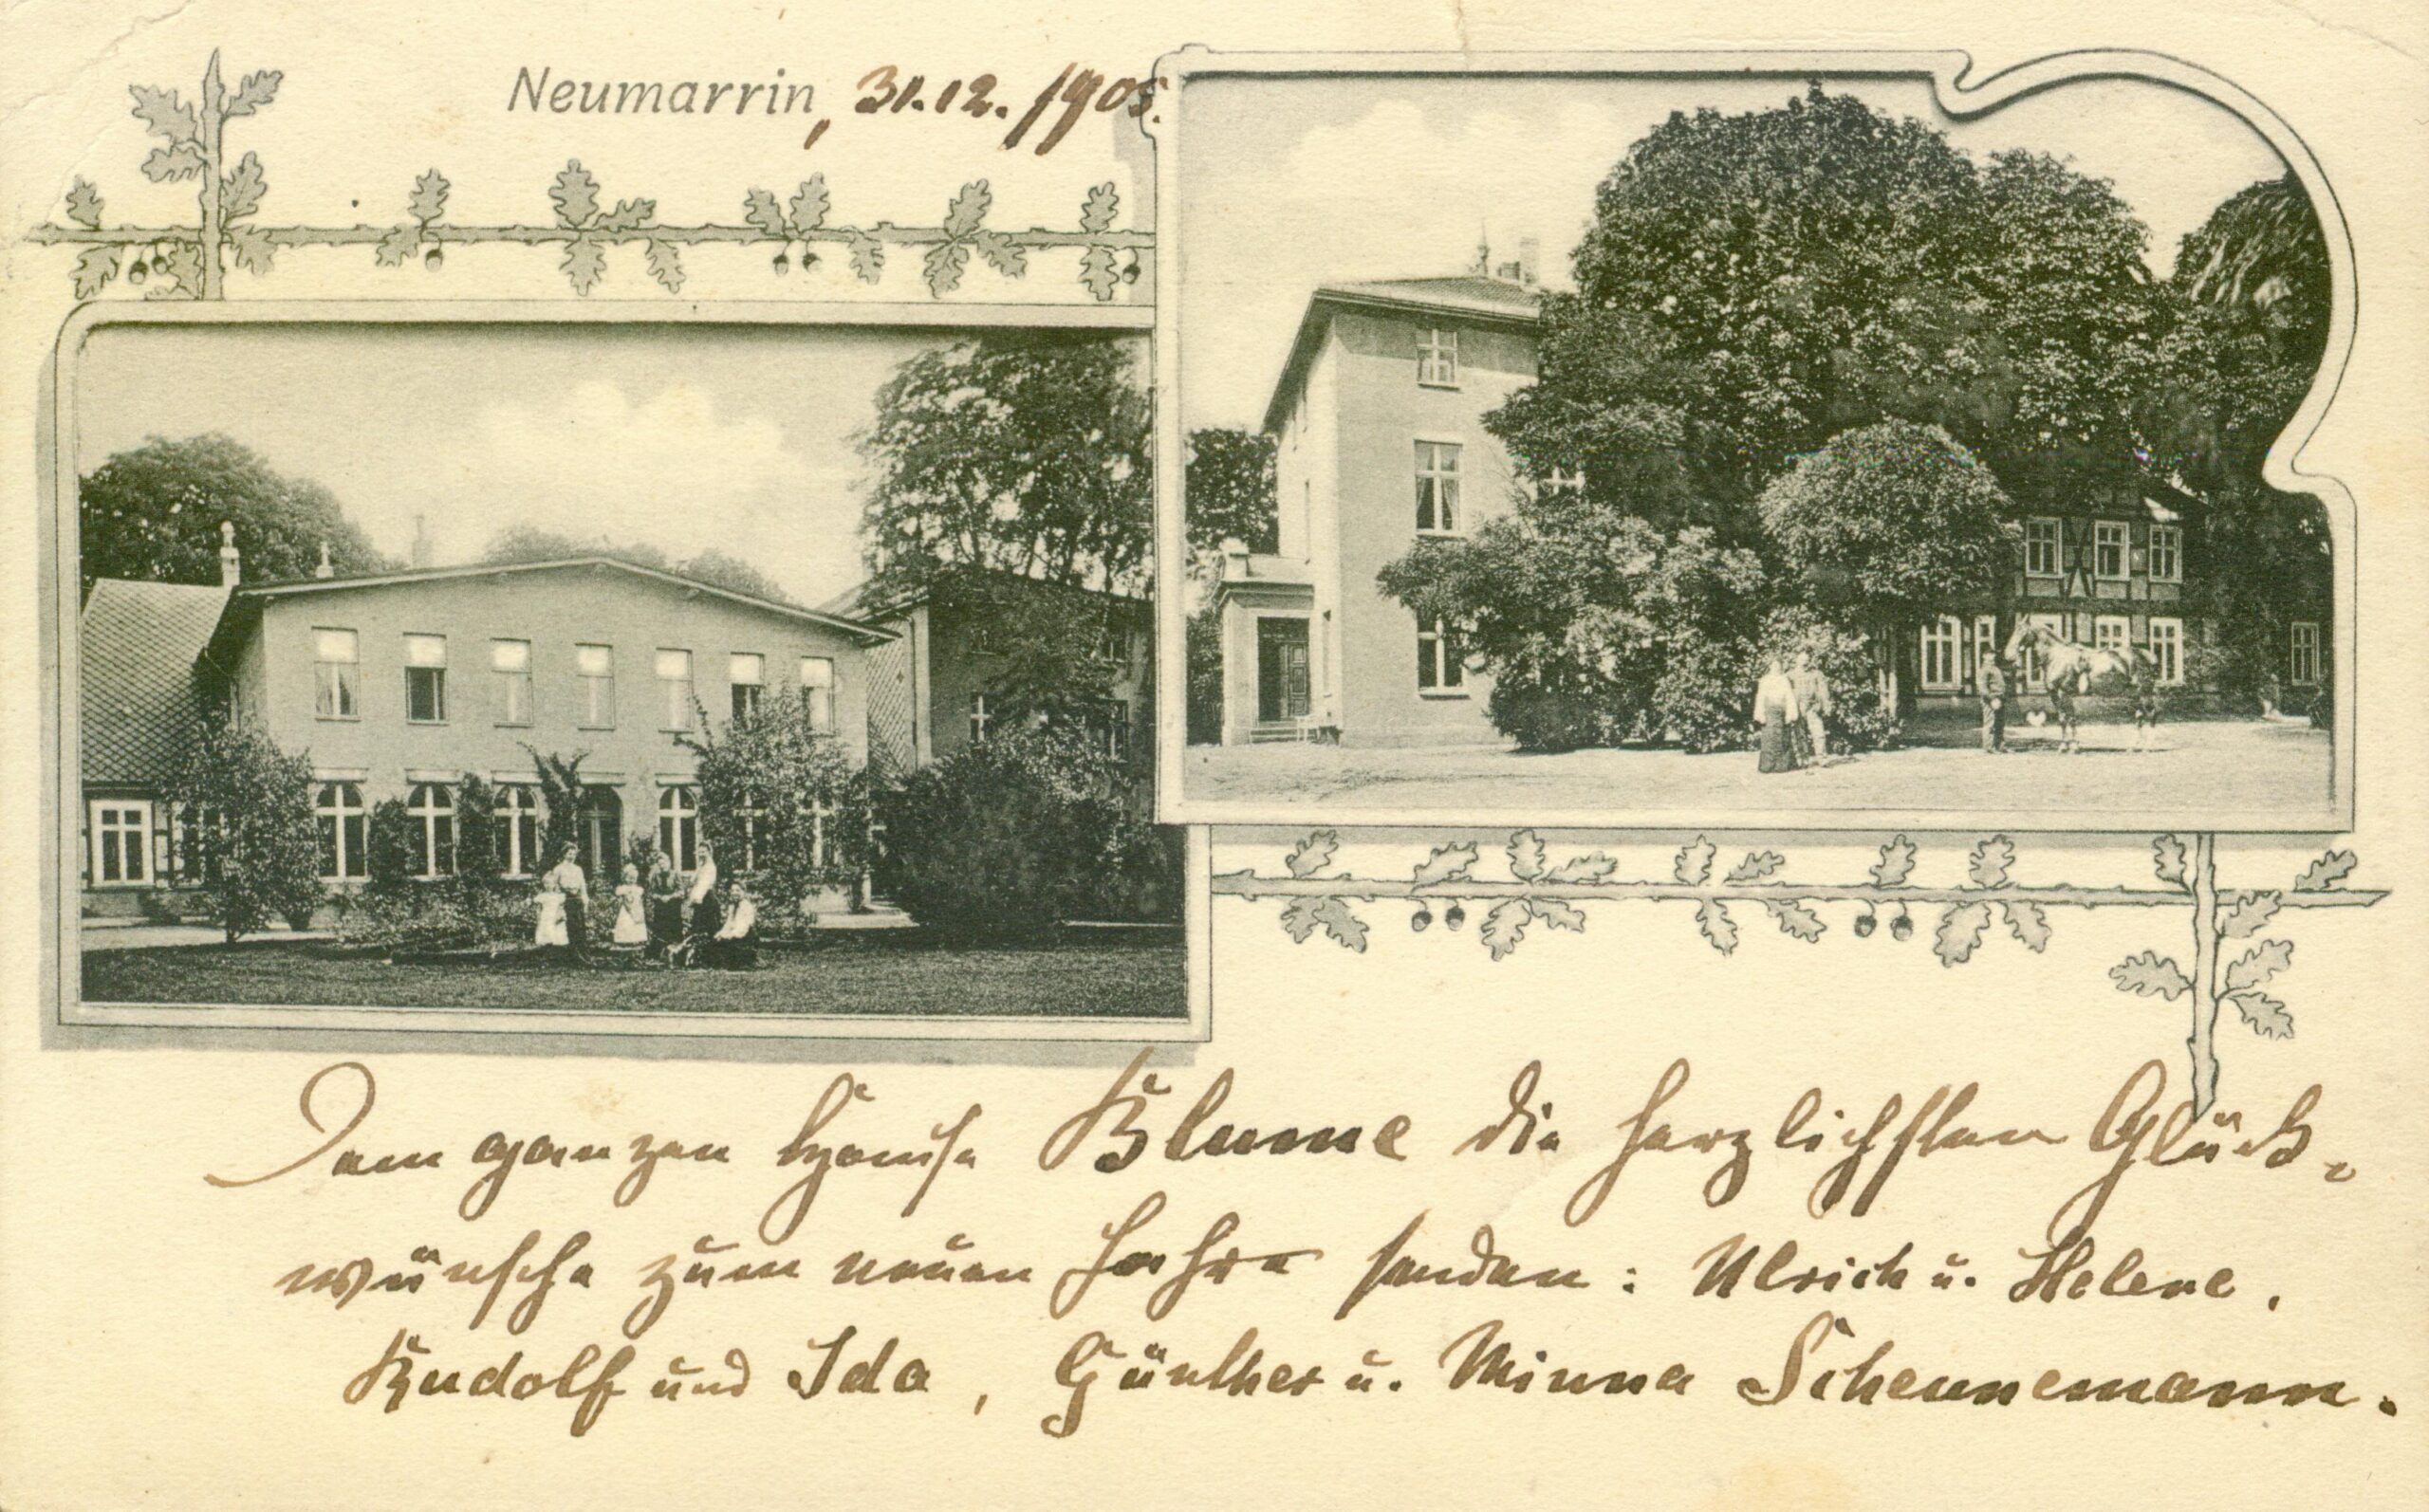 Neumarrin, 31.12.1905.
Dem ganzen Hause Blume die herzlichsten Glück-
wünsche zum neuen Jahre senden: Ulrich u. Helene,
Rudolf und Ida, Günther u. Minna Scheunemann.